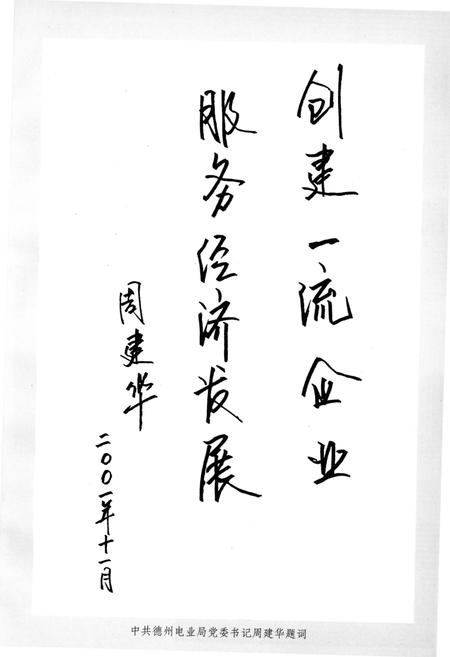 创建一流企业
服务经济发展
周建华
二〇〇一年十一月
中共德州电业局党委书记周建华题词